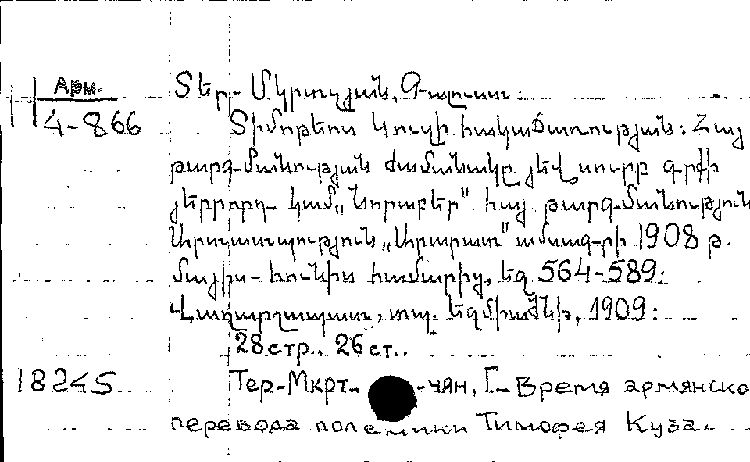 Арм.
4-866
Տեր-Մկրտչյան, Գալուստ
Տիմոթեոս Կուզի հակաճառության: Հայ
թարգմանության ժամանակը յեվ սուրբ գրքի
յերրորդ կամ „Նորաբեր" հայ թարգմանություն
Արտատպություն „Արարատ" ամսագրի 1908 թ.
մայիս-հունիս համարից, եզ 564-589:
Վաղարշապատ, տպ. Եզմիածնի, 1909:
28 стр., 26 ст.
18245
Тер-Мкрт- -чян, Г.- Время армянско
перевода полемики Тимофея Куза-